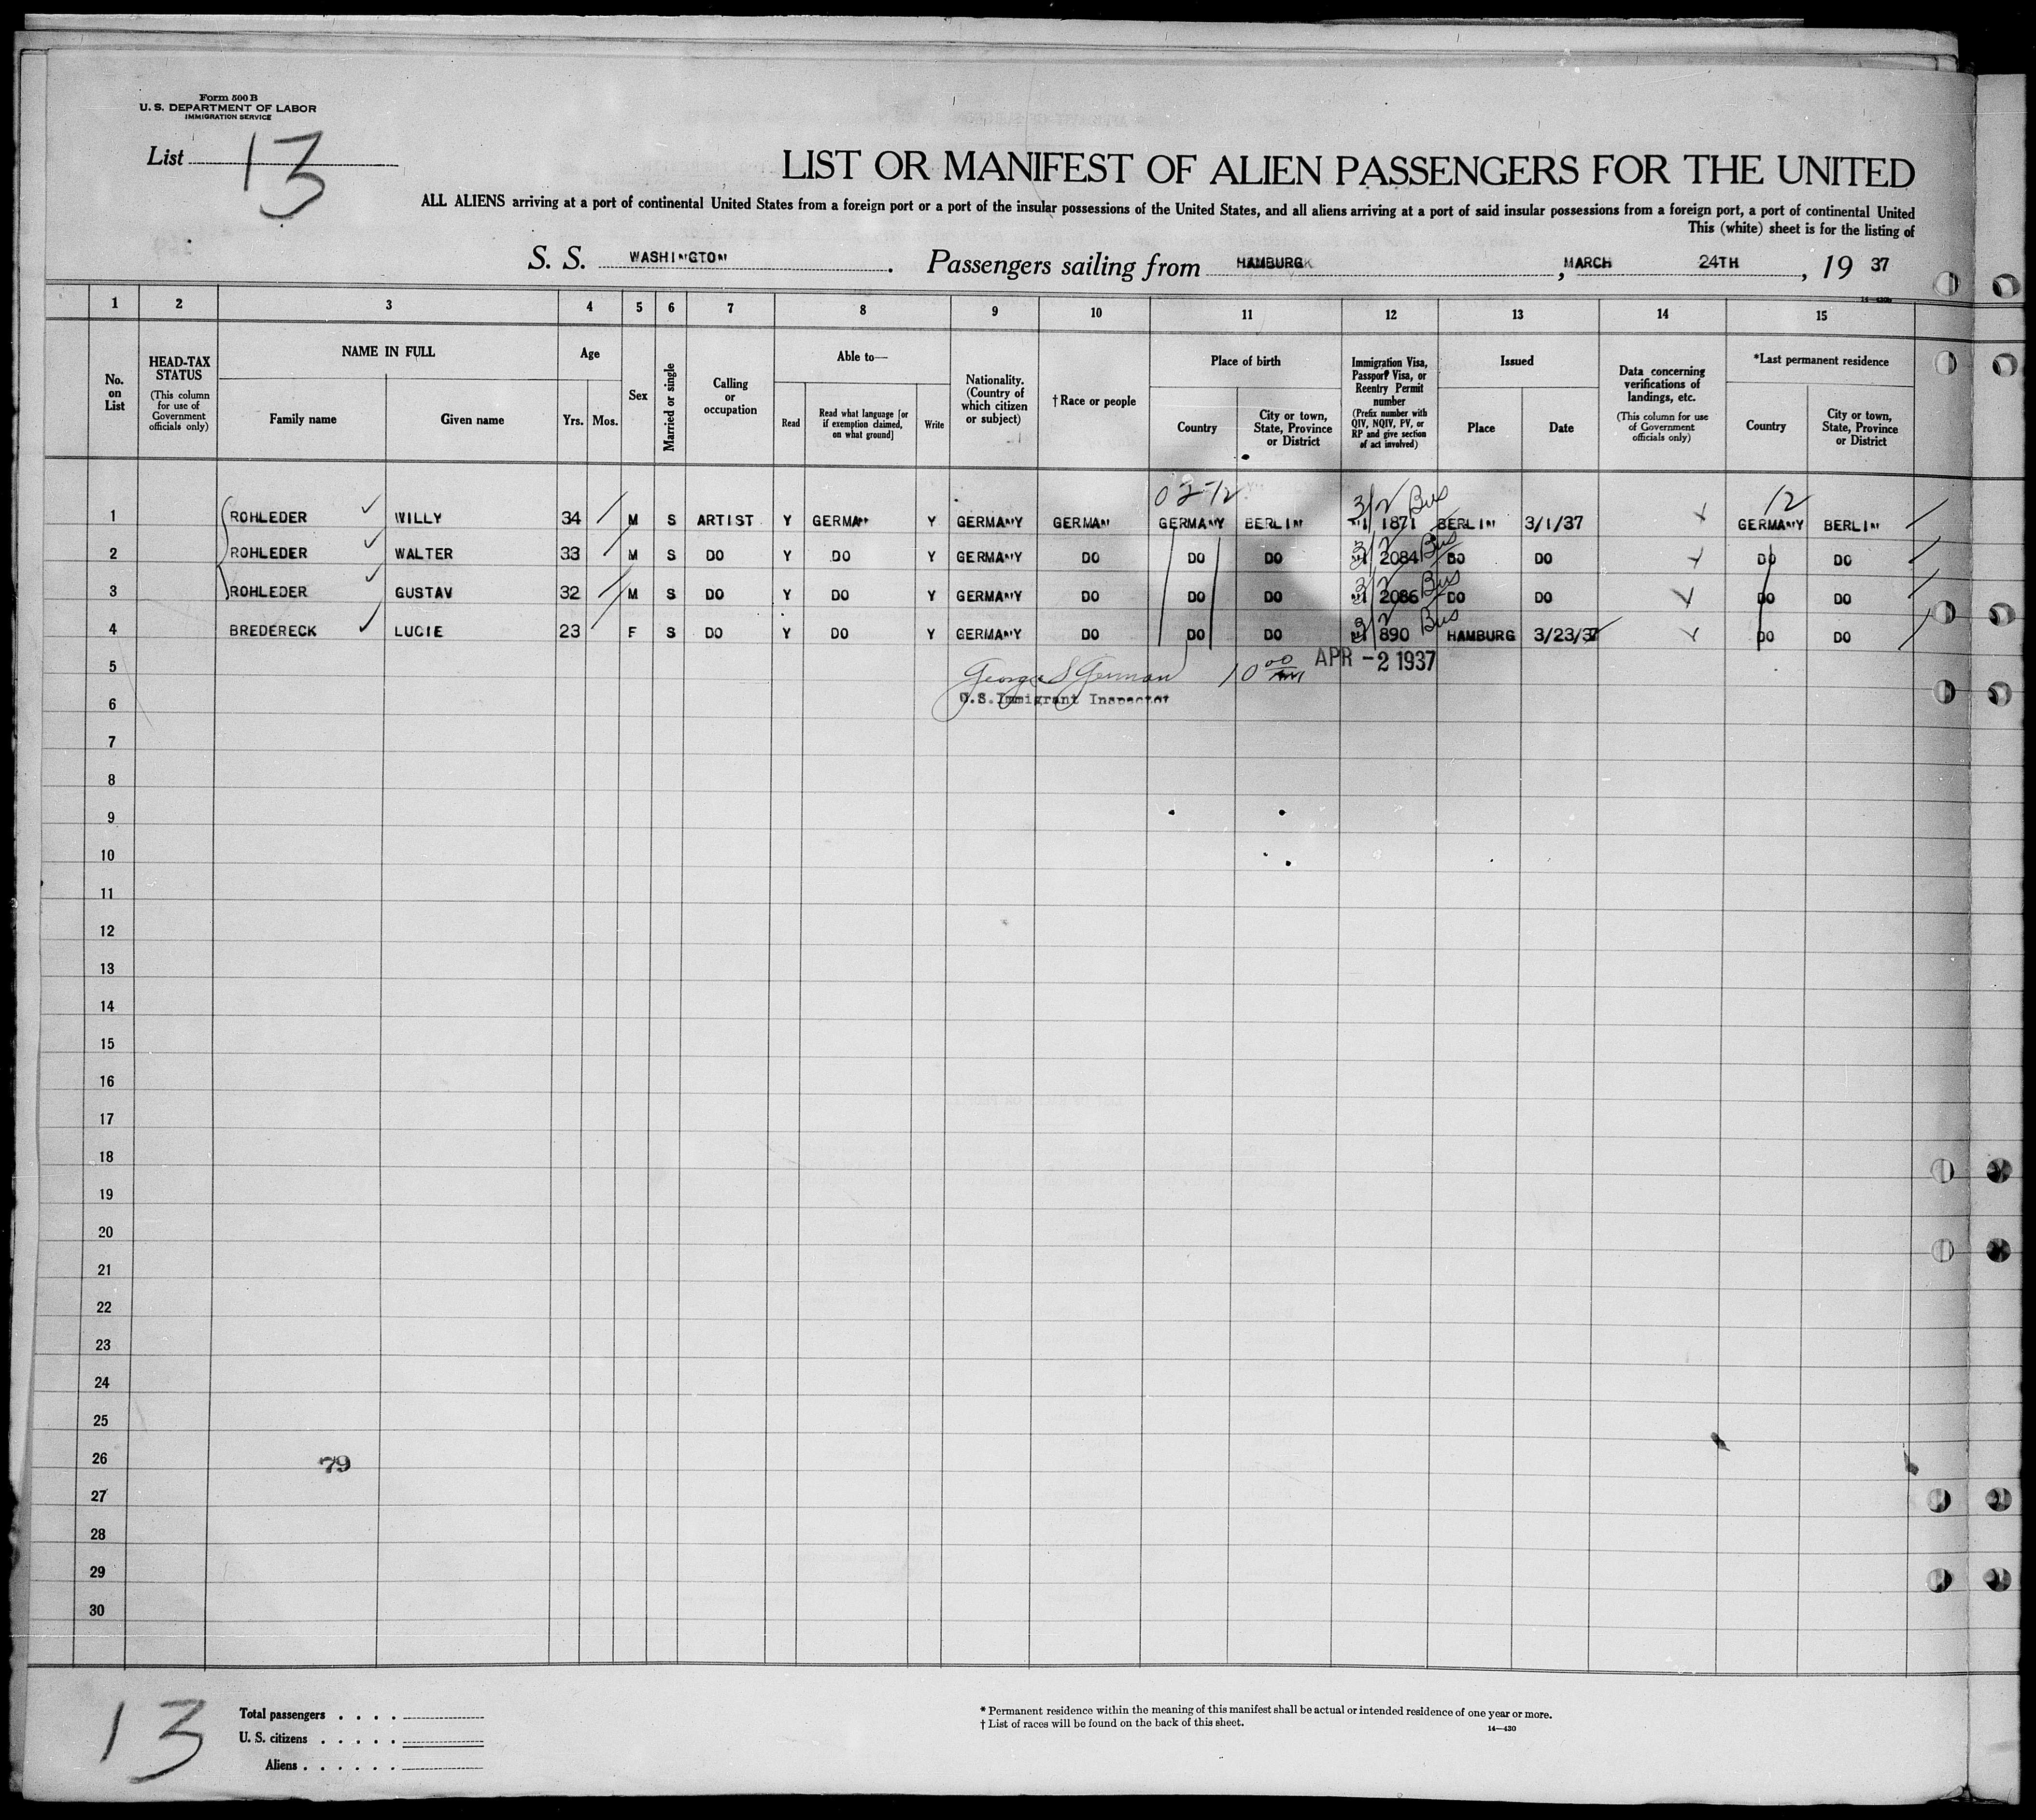 Form 500 B
U. S. DEPARTMENT OF LABOR
IMMIGRATION SERVICE
List 13
LIST OR MANIFEST OF ALIEN PASSENGERS FOR THE UNITED
ALL ALIENS arriving at a port of continental United States from a foreign port or a port of the insular possessions of the United States, and all aliens arriving at a port of said insular possessions from a foreign port, a port of continental United
This (white) sheet is for the listing of
S. S. WASHINGTON. Passengers sailing from HAMBURG, MARCH 24TH, 19 37
1 2 3 4 5 6 7 8 9 10 11 12 13 14 15
No. on List
HEAD-TAX STATUS (This column for use of Government officials only)
NAME IN FULL
Family name Given name
Age
Yrs. Mos.
Sex
Married or single
Calling or occupation
Able to—
Read Read what language [or if exemption claimed, on what ground] Write
Nationality. (Country of which citizen or subject)
† Race or people
Place of birth
Country City or town, State, Province or District
Immigration Visa, Passport Visa, or Reentry Permit number (Prefix number with QIV, NQIV, PV, or RP and give section of act involved)
Issued
Place Date
Data concerning verifications of landings, etc. (This column for use of Government officials only)
*Last permanent residence
Country City or town, State, Province or District
3/2 Bus 12
1 ROHLEDER WILLY 34 M S ARTIST Y GERMAN Y GERMANY GERMAN GERMANY BERLIN 1871 BERLIN 3/1/37 GERMANY BERLIN
3/2 Bus
2 ROHLEDER WALTER 33 M S DO Y DO Y GERMANY DO DO DO 2084 DO DO DO DO
3/2 Bus
3 ROHLEDER GUSTAV 32 M S DO Y DO Y GERMANY DO DO DO 2086 DO DO DO DO
3/2 Bus
4 BREDERECK LUCIE 23 F S DO Y DO Y GERMANY DO DO DO 890 HAMBURG 3/23/37 DO DO
5 George S German 10 00 APR - 2 1937
6 U.S. Immigrant Inspector
7
8
9
10
11
12
13
14
15
16
17
18
19
20
21
22
23
24
25
26 79
27
28
29
30
13
Total passengers . . . .
U. S. citizens . . . . .
Aliens . . . . . .
* Permanent residence within the meaning of this manifest shall be actual or intended residence of one year or more.
† List of races will be found on the back of this sheet. 14—430